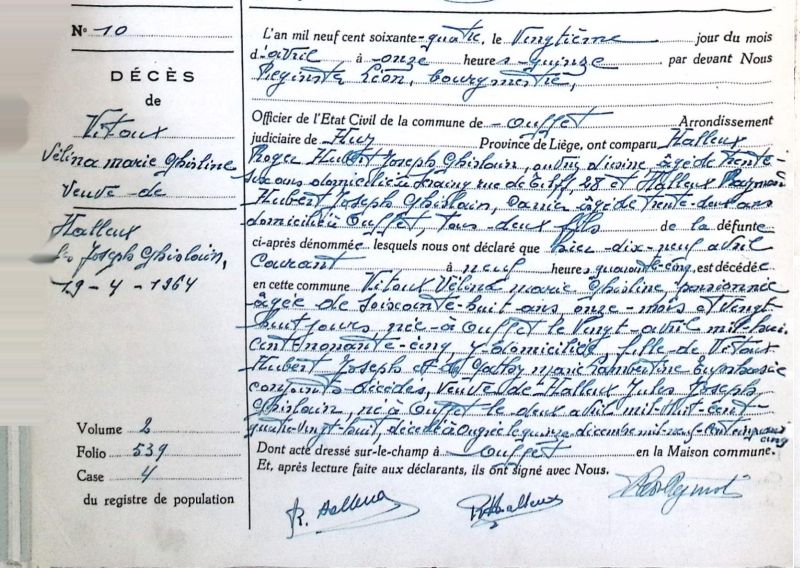 N° 10
DÉCÈS
de
Vitoux
Vélina Marie Ghisline
Veuve de
Halleux
Joseph Ghislain,
19-4-1964
Volume 2
Folio 539
Case 4
du registre de population
L'an mil neuf cent soixante-quatre, le Vingtième jour du mois
d'avril à onze heures quinze par devant Nous
Léon, bourgmestre,
Officier de l'Etat Civil de la commune de Ouffet Arrondissement
judiciaire de Huy Province de Liège, ont comparu Halleux
Roger Hubert Joseph Ghislain, âgé de trente-
six ans domicilié à rue de 28 et Halleux Raymond
Hubert Joseph Ghislain, âgé de trente-deux ans
domicilié à Ouffet, tous deux fils de la défunte
ci-après dénommée lesquels nous ont déclaré que hier dix-neuf avril
courant à neuf heures quarante-cinq, est décédée
en cette commune Vitoux Vélina Marie Ghisline pensionnée
âgée de soixante-huit ans, onze mois et vingt
huit jours, née à Ouffet le vingt avril mil-hui
cent nonante-cinq, y domiciliée, fille de Vitoux
Hubert Joseph et de Marie Lambertine
conjoints décédés, veuve de Halleux Jules Joseph
Ghislain, né à Ouffet le deux avril mil-huit-cent-
quatre-vingt-huit, décédé à Ougrée le quinze décembre mil-neuf-cent
cinq
Dont acte dressé sur-le-champ à Ouffet en la Maison commune.
Et, après lecture faite aux déclarants, ils ont signé avec Nous.
R. Halleux
R. Halleux